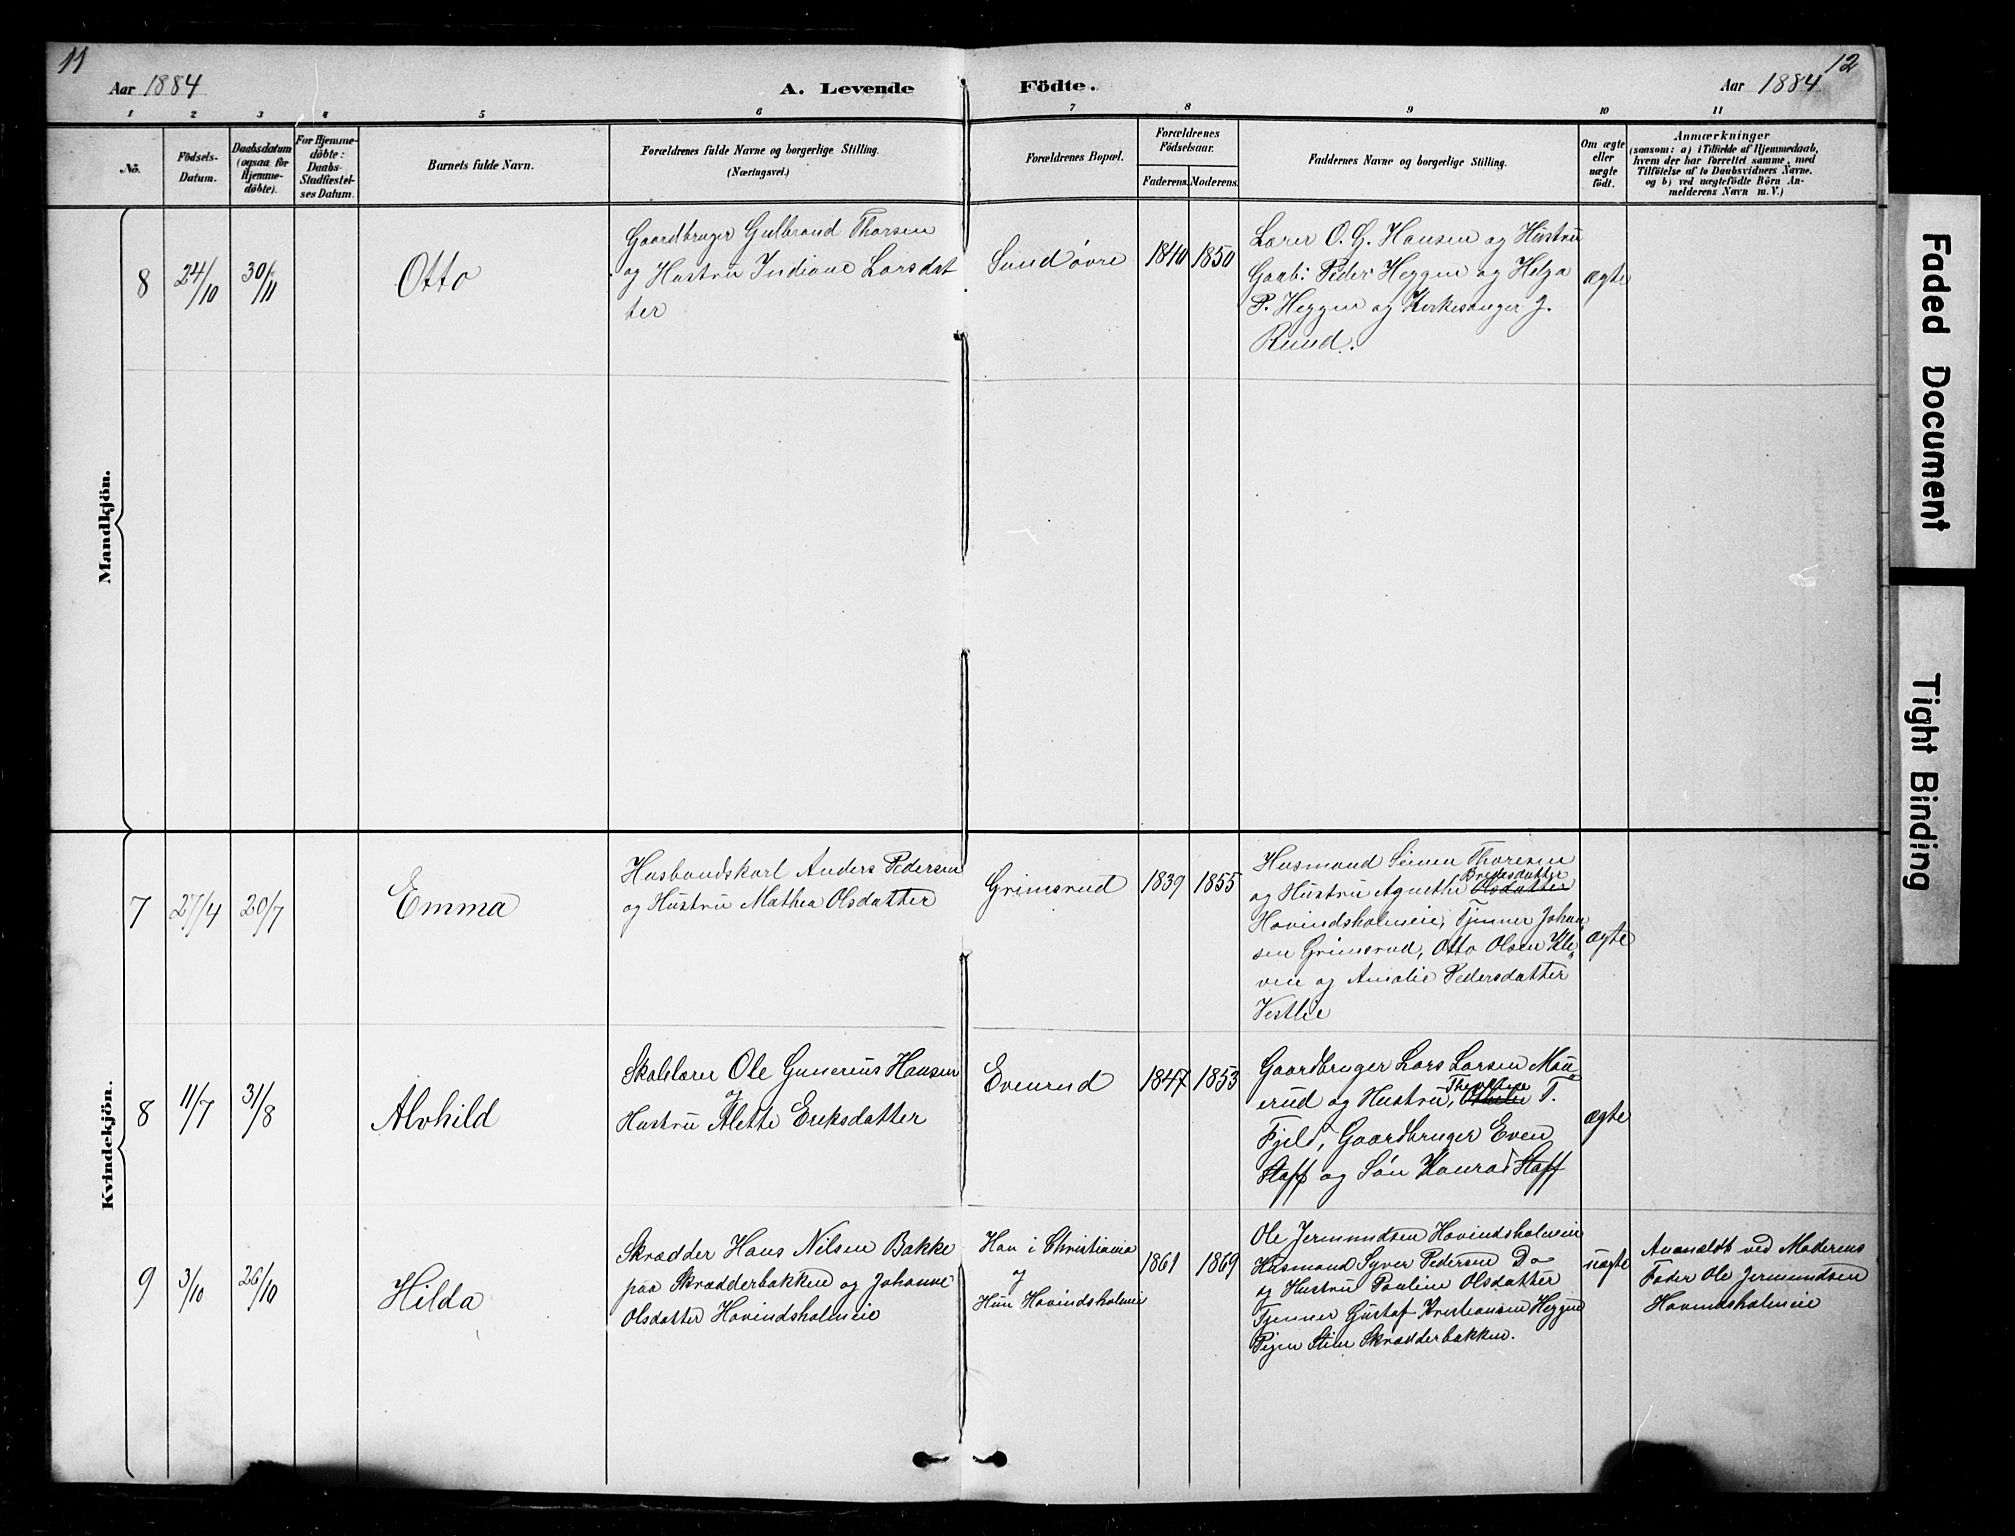 11
Aar 1884
A. Levende
Födte.
Aar 1884
12
1
2
3
4
5
6
7
8
9
10
11
No.
Födsels-
Datum.
Daabsdatum
(ogsaa for
Hjemme-
döbte).
For Hjemme-
döbte:
Daabs-
Stadfæstel-
ses Datum.
Barnets fulde Navn.
Forældrenes fulde Navne og borgerlige Stilling.
(Næringsvei.)
Forældrenes Bopæl.
Forældrenes
Födselsaar.
Faderens.
Moderens.
Faddernes Navne og borgerlige Stilling.
Om ægte
eller
uægte
födt.
Anmærkninger
(saasom: a) i Tilfælde af Hjemmedaab,
hvem der har forrettet samme, med
Tilföielse af to Daabsvidners Navne,
og b) ved uægtefödte Börn An-
melderens Navn m. V.)
Mandkjön.
8
24/10
30/11
Otto
Gaardbruger Gulbrand Thorsen
og Hustru Indiane Larsdat
ter
Sund övre
1840
1850
Lærer O. G. Hansen og Hustru
Gaab: Peder Heggen og Helga
P. Heggen og Kirkesanger J.
Ruud.
ægte
Kvindekjön.
7
27/4
20/7
Emma
Husbondskarl Anders Pedersen
og Hustru Mathea Olsdatter
Grimsrud
1839
1855
Husmand Simen Thoresen
Bredesdatter
og Hustru Agnethe Olsdatter
Hovindsholmeie, Tjener Johan
sen Grimsrud, Otto Olsen Kle
ven og Amalie Pedersdatter
Vestlie
ægte
8
11/7
31/8
Alvhild
Skolelærer Ole Gunerius Hansen
og
Hustru Alette Eriksdatter
Evenrud
1847
1853
Gaardbruger Lars Larsen Mau
erud og Hustru, T.
Fjeld, Gaardbruger Even
Staff og Sön Konrad Staff
ægte
9
3/10
26/10
Hilda
Skrædder Hans Nilsen Bakke
paa Skrædderbakken og Johanne
Olsdatter Hovindsholmeie
Han i Christiania
og
Hun Hovindsholmeie
1861
1869
Ole Jermundsen Hovindsholmeie
Husmand Syver Pedersen Do
og Hustru Pauline Olsdatter
Tjener Gustaf Kristiansen Heggen
Pigen Stine Skrædderbakken.
uægte
Anmeldt ved Moderens
Fader Ole Jermundsen
Hovindsholmeie
Faded Document
Tight Binding